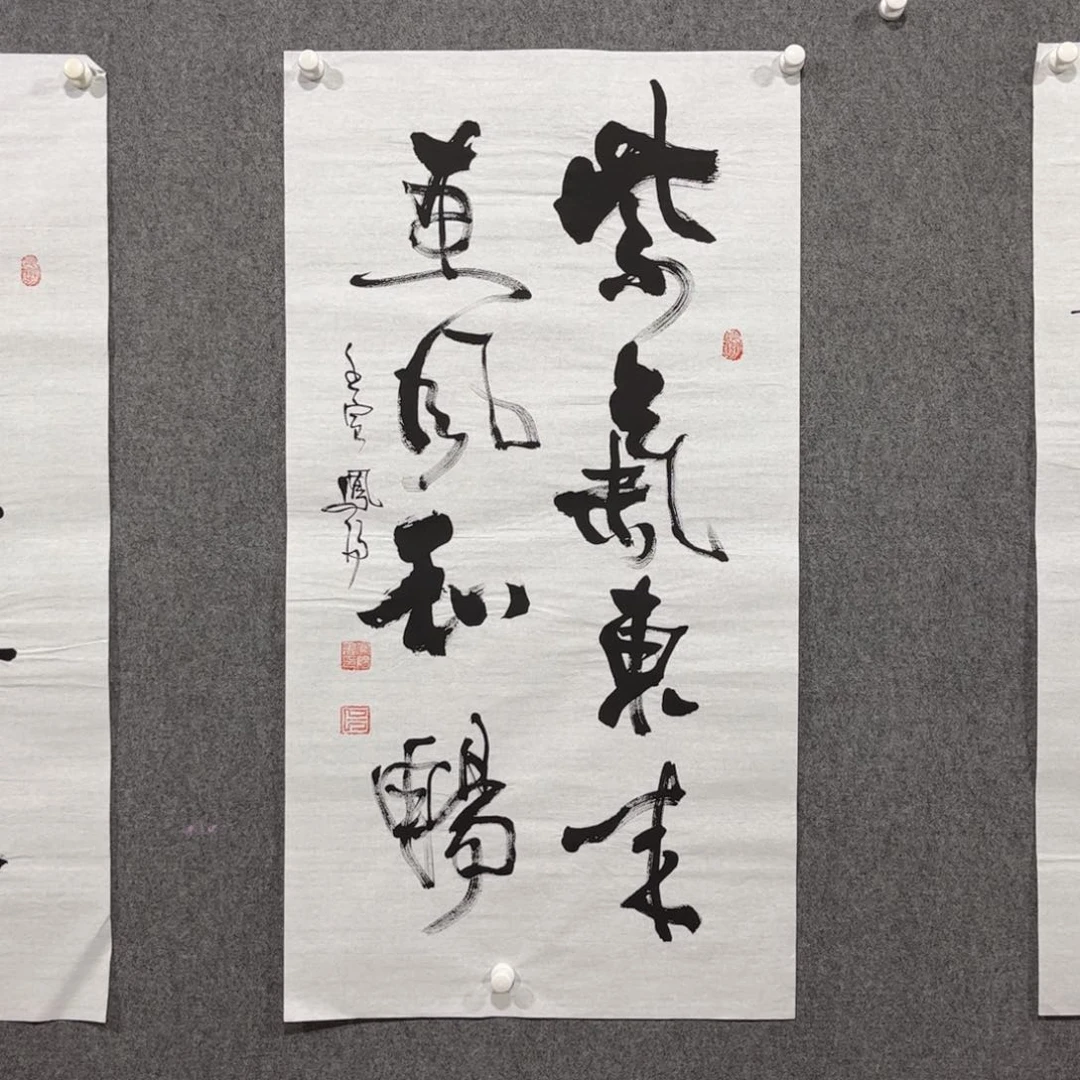 紫氣東來
惠風和暢
壬寅 鳳揚